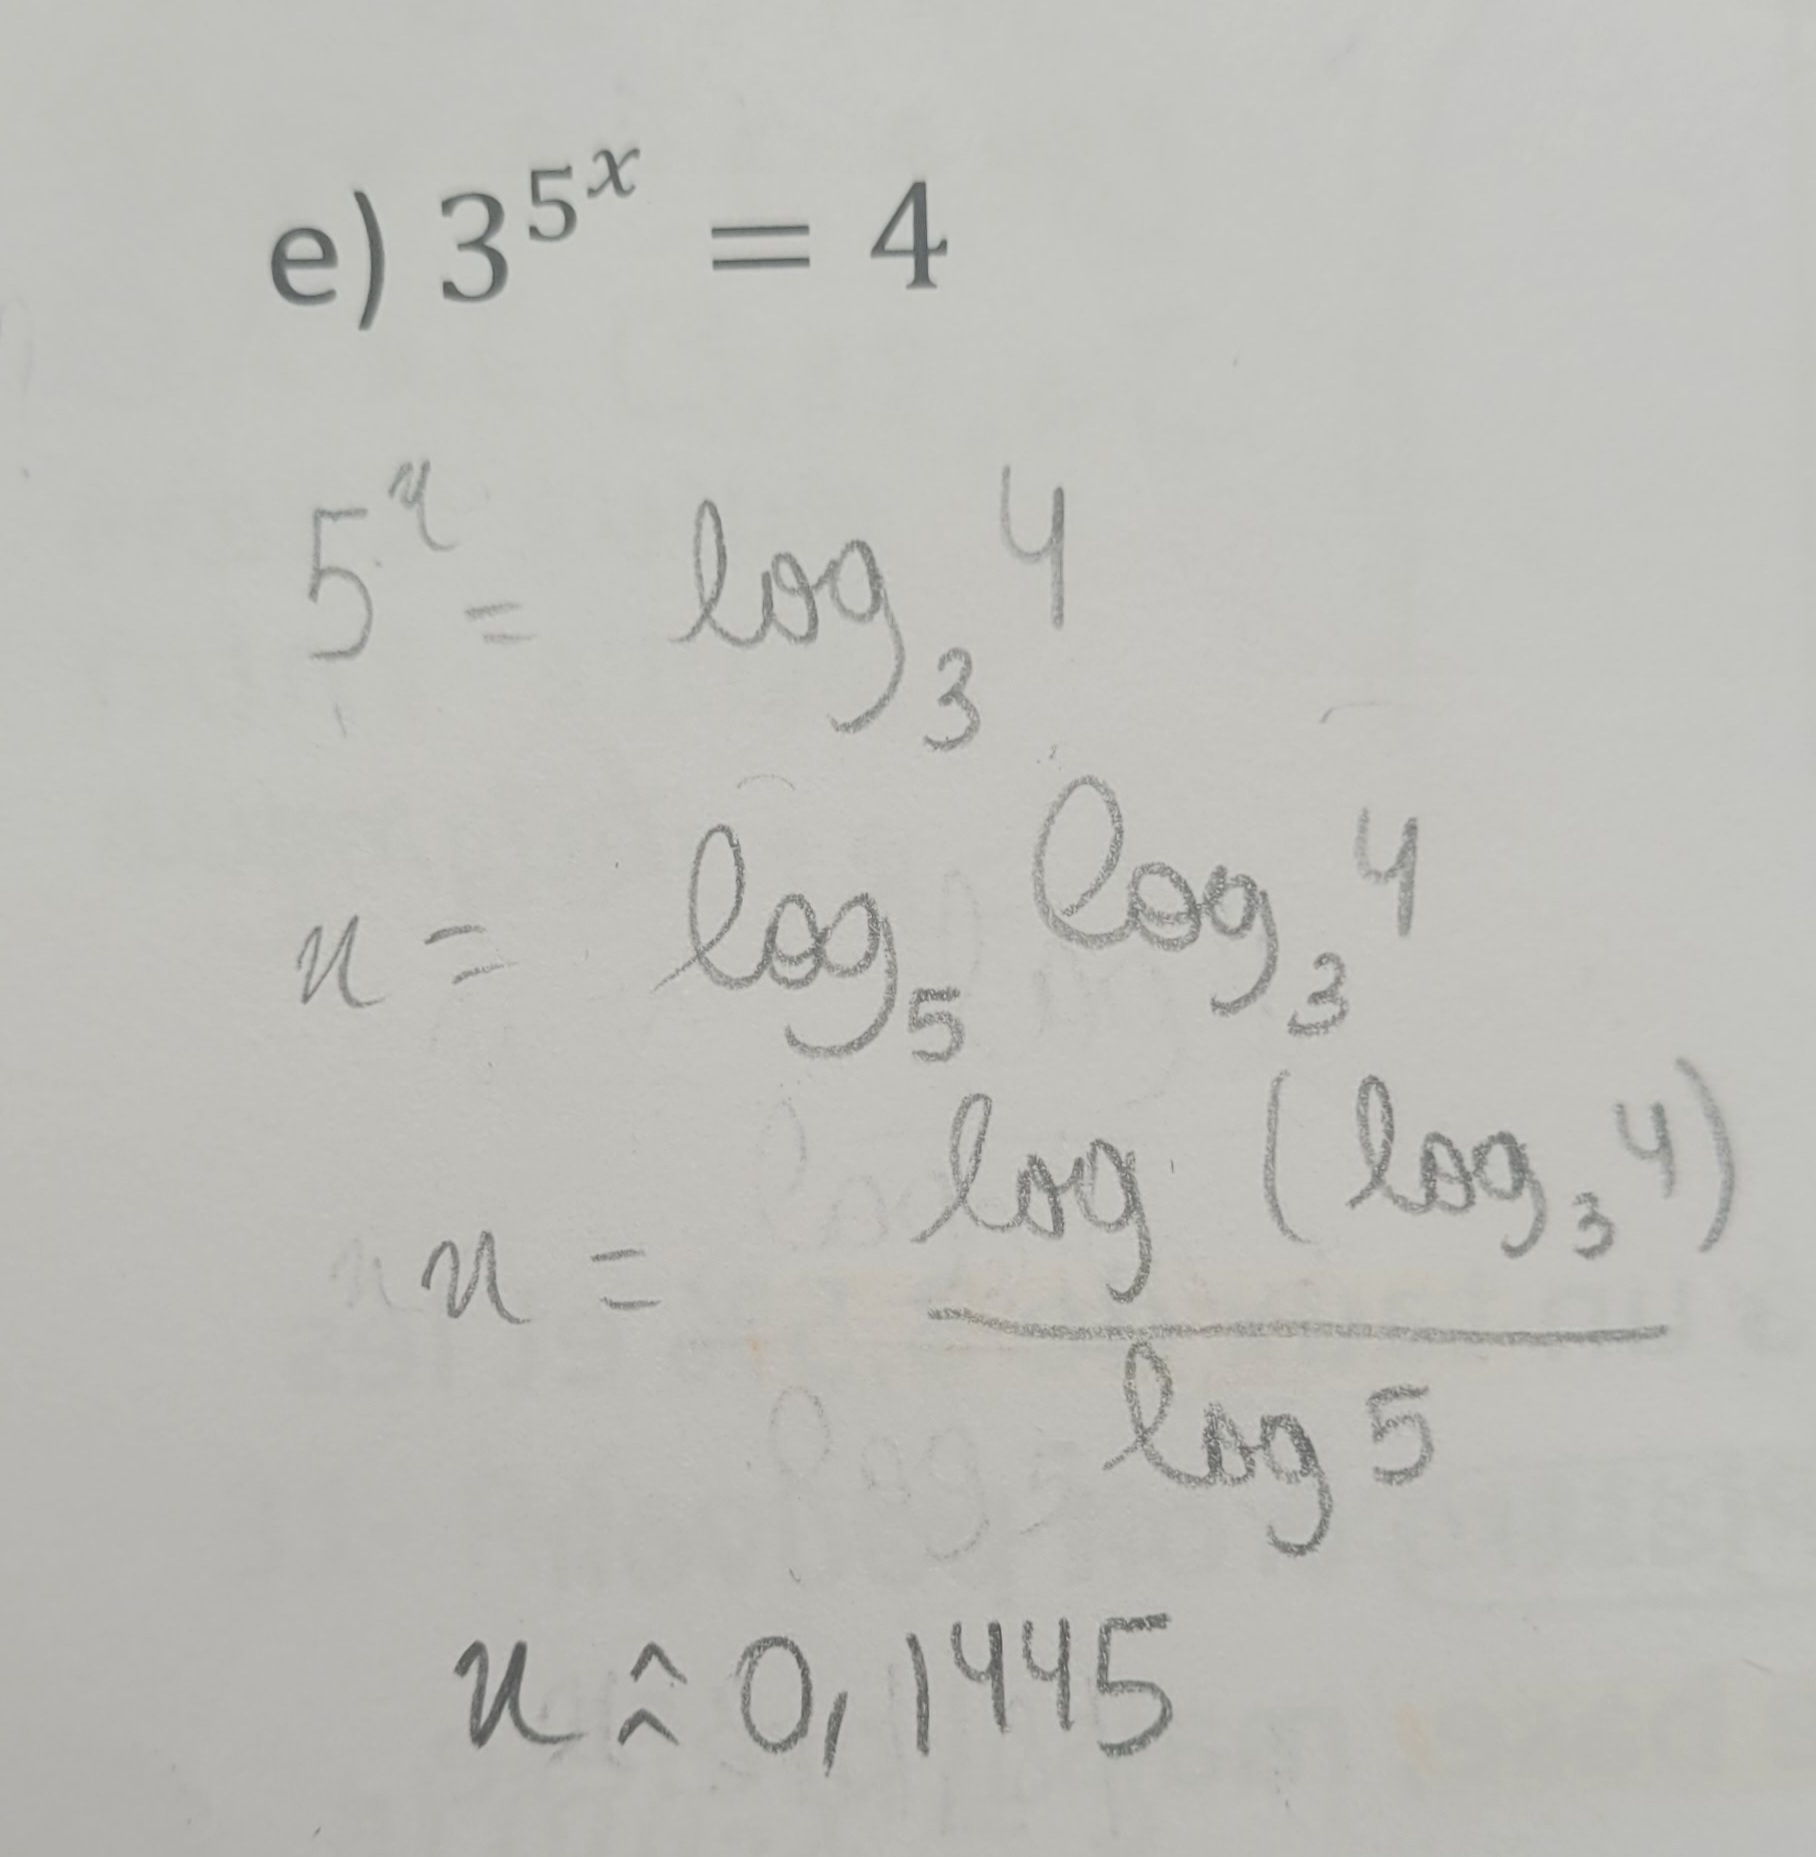 e) 3^{5^x} = 4
5^x = log_3 4
x = log_5 log_3 4
x = \frac{log (log_3 4)}{log 5}
x ≈ 0,1445